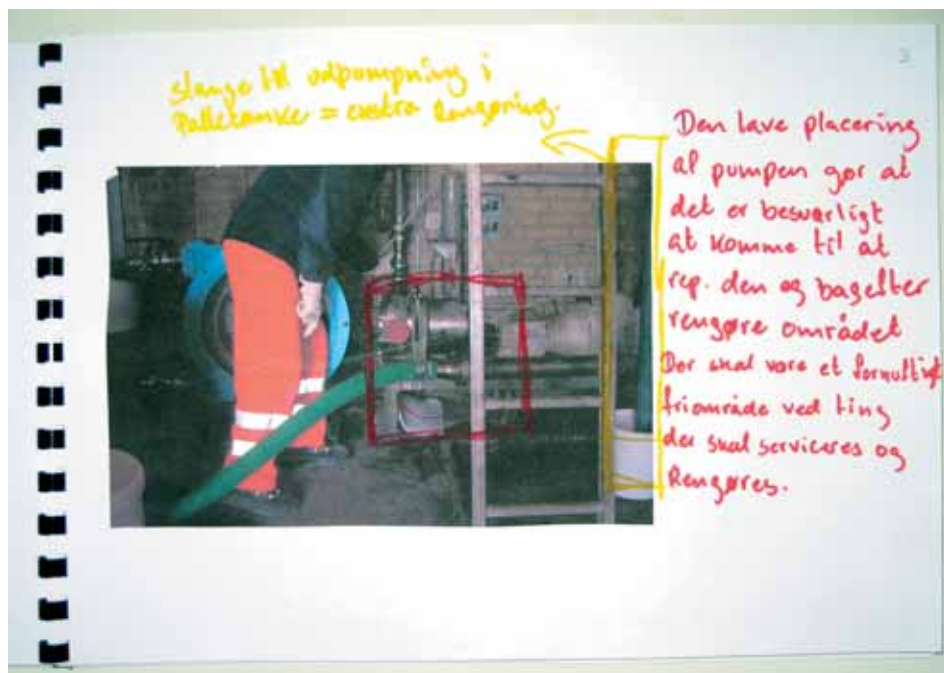 3
slange til udpumpning i
Palletanke = extra Rengøring.
Den lave placering
af pumpen gør at
det er besværligt
at komme til at
rep. den og bagefter
rengøre området
Der skal være et fornuftigt
friområde ved ting
der skal serviceres og
Rengøres.